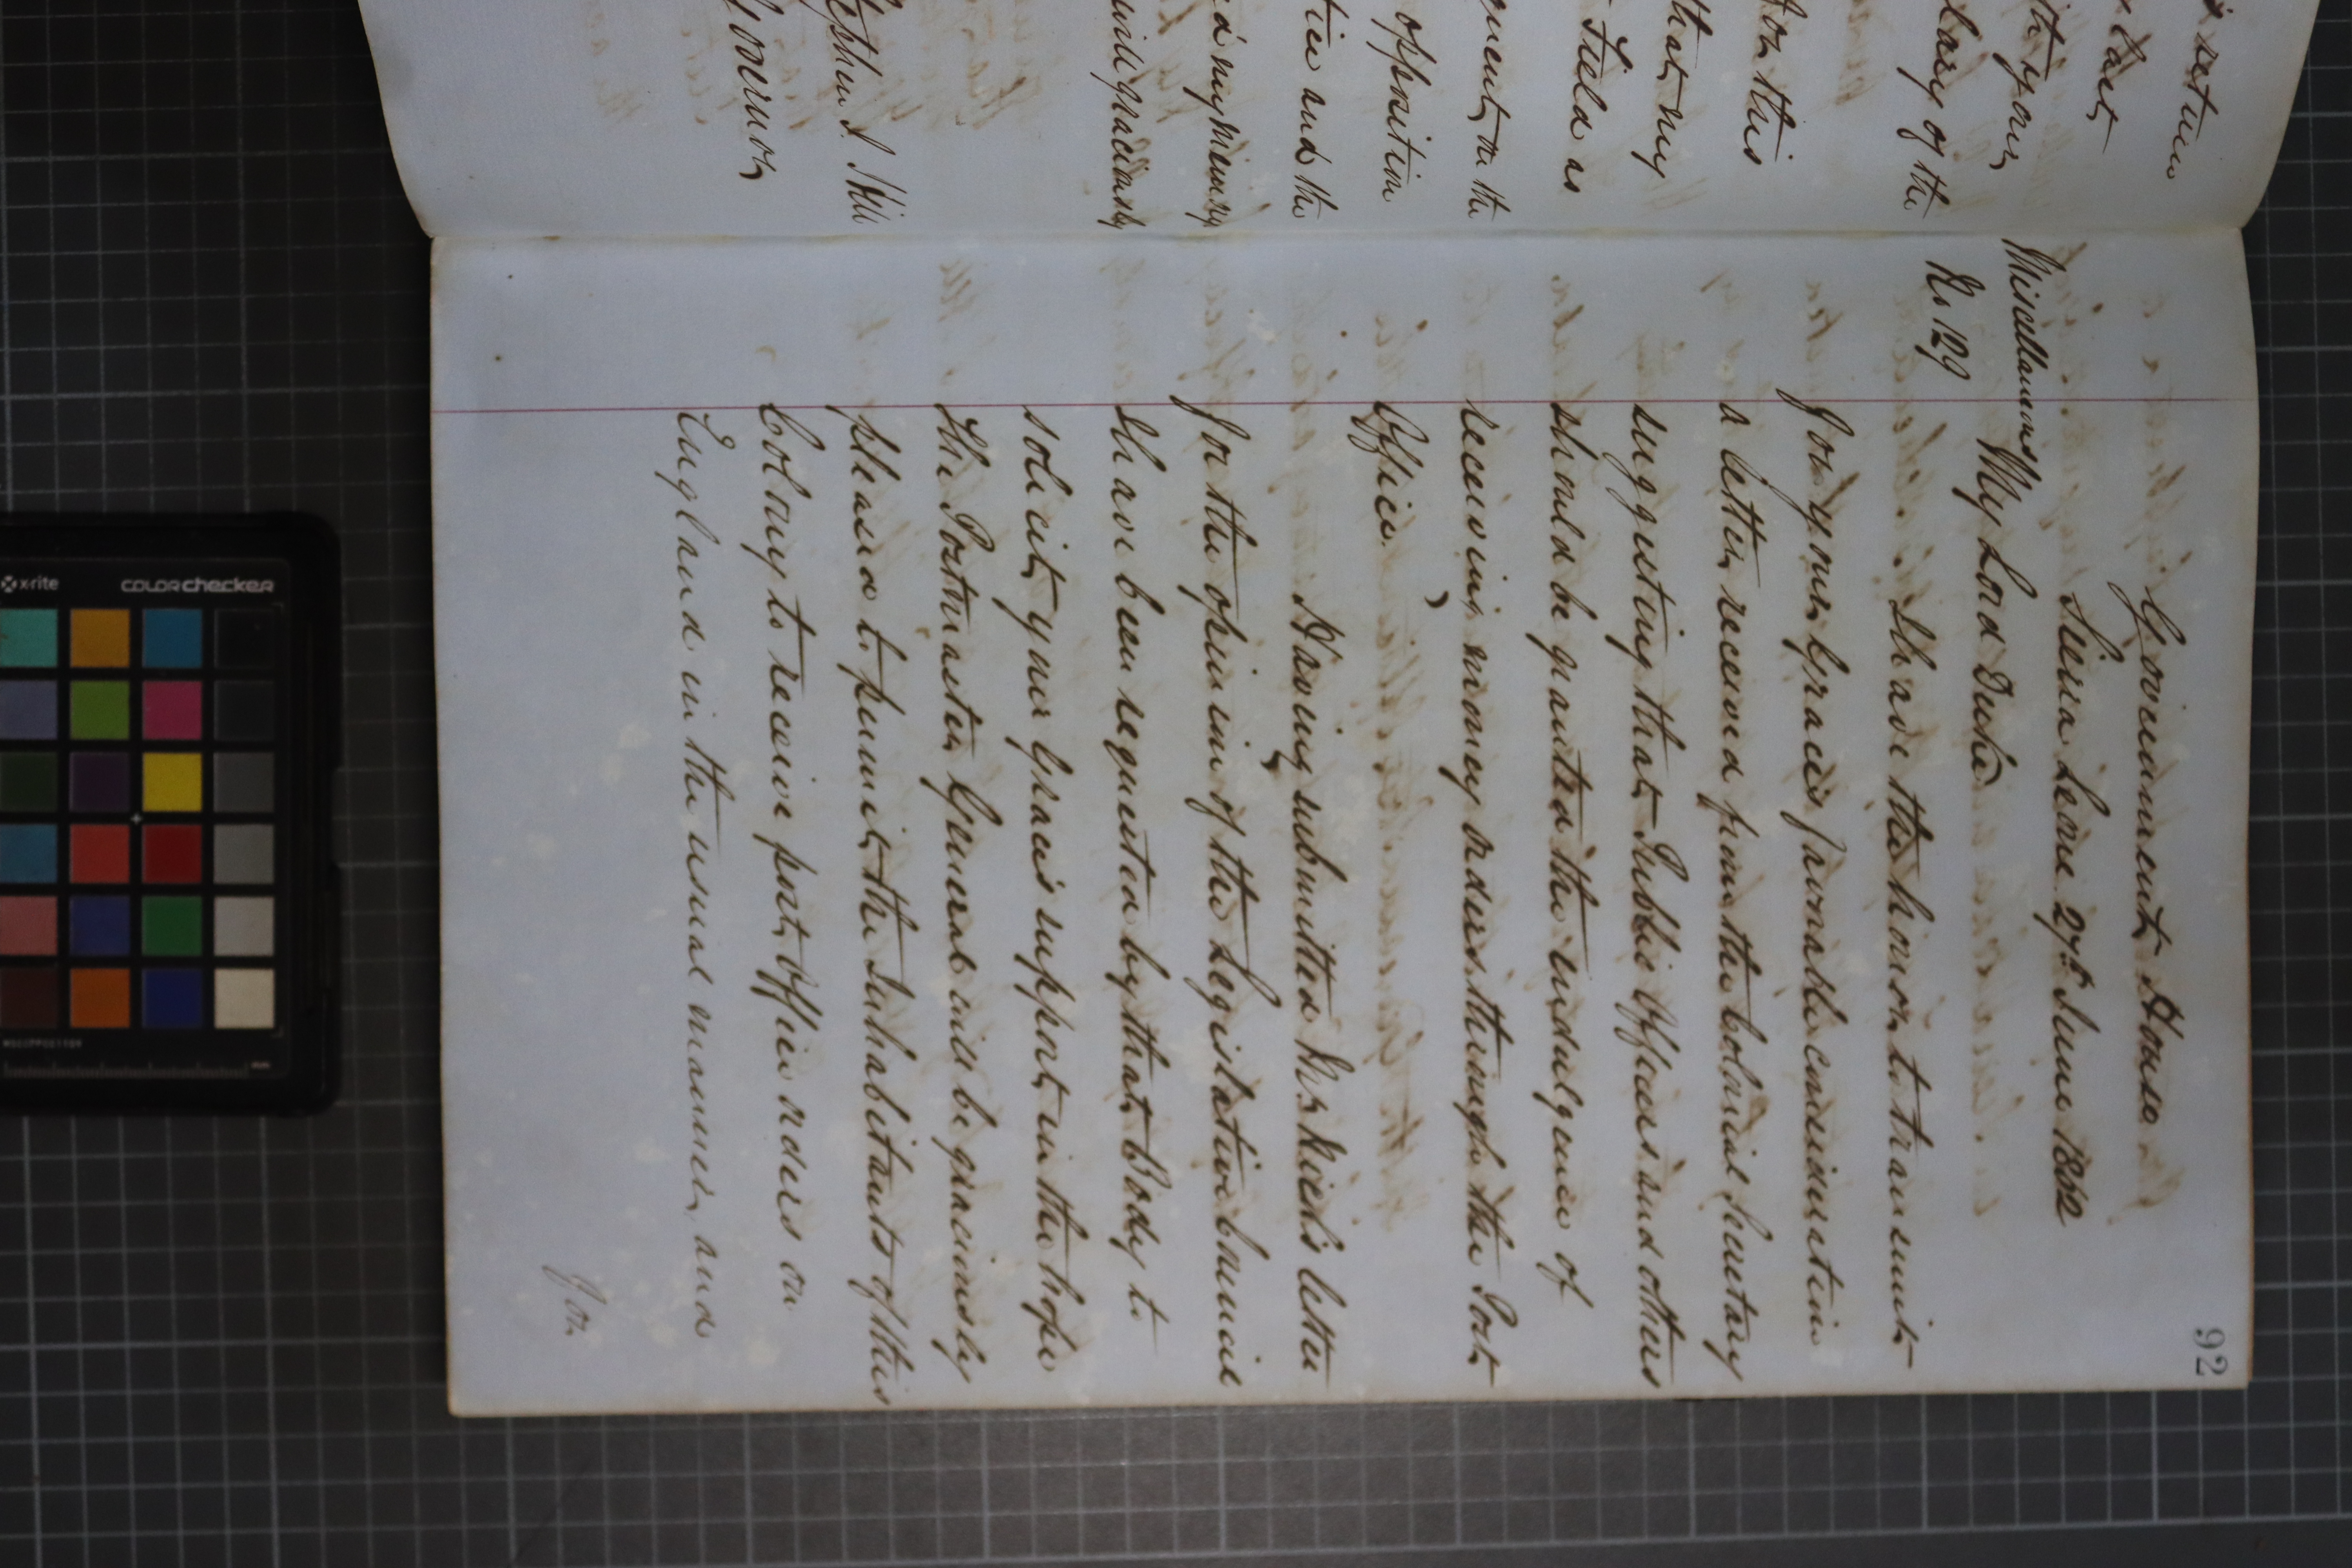 s return
last
ith your
lary of the
for this
that my
Field as
quent, on the
opposition
tice and the
ed my memory
will graciously
Stephen J. Hill
Governor
92
Government House
Sierra Leone 27th June 1862
Miscellaneous
No. 129
My Lord Duke
I have the honor to transmit
for your Grace's favorable consideration
a letter received from the Colonial Secretary
suggesting that Public Officers and others
should be granted the indulgence of
receiving money orders through the Post
Office.
Having submitted Mr. letter
for the opinion of the Legislative Council
I have been requested by that Body to
solicit your Grace's support in the hope
the Postmaster General will be graciously
pleased to permit the Inhabitants of this
Colony to receive post Office orders on
England in the usual manner, and
for
x-rite
COLORchecker